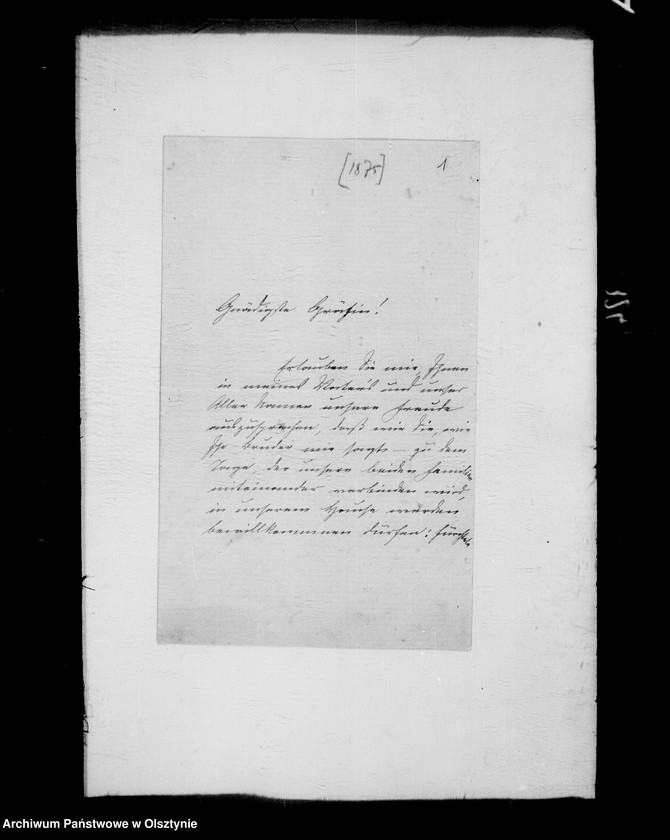 [1875]
1
Gnädigste Gräfin!
Erlauben Sie mir, Ihnen
in meines Vaters und unser
Aller Namen unsere Freude
auszusprechen, daß wir Sie, wie
Ihr Bruder mir sagte – zu dem
Tage, der unsere beiden Familien
miteinander verbinden wird,
in unserem Hause werden
bewillkommnen dürfen:
Archiwum Państwowe w Olsztynie